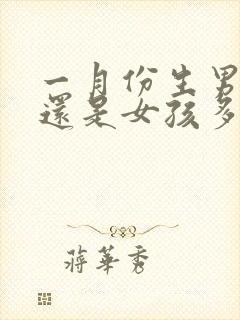 一月份生男
還是女孩多
蔣華秀